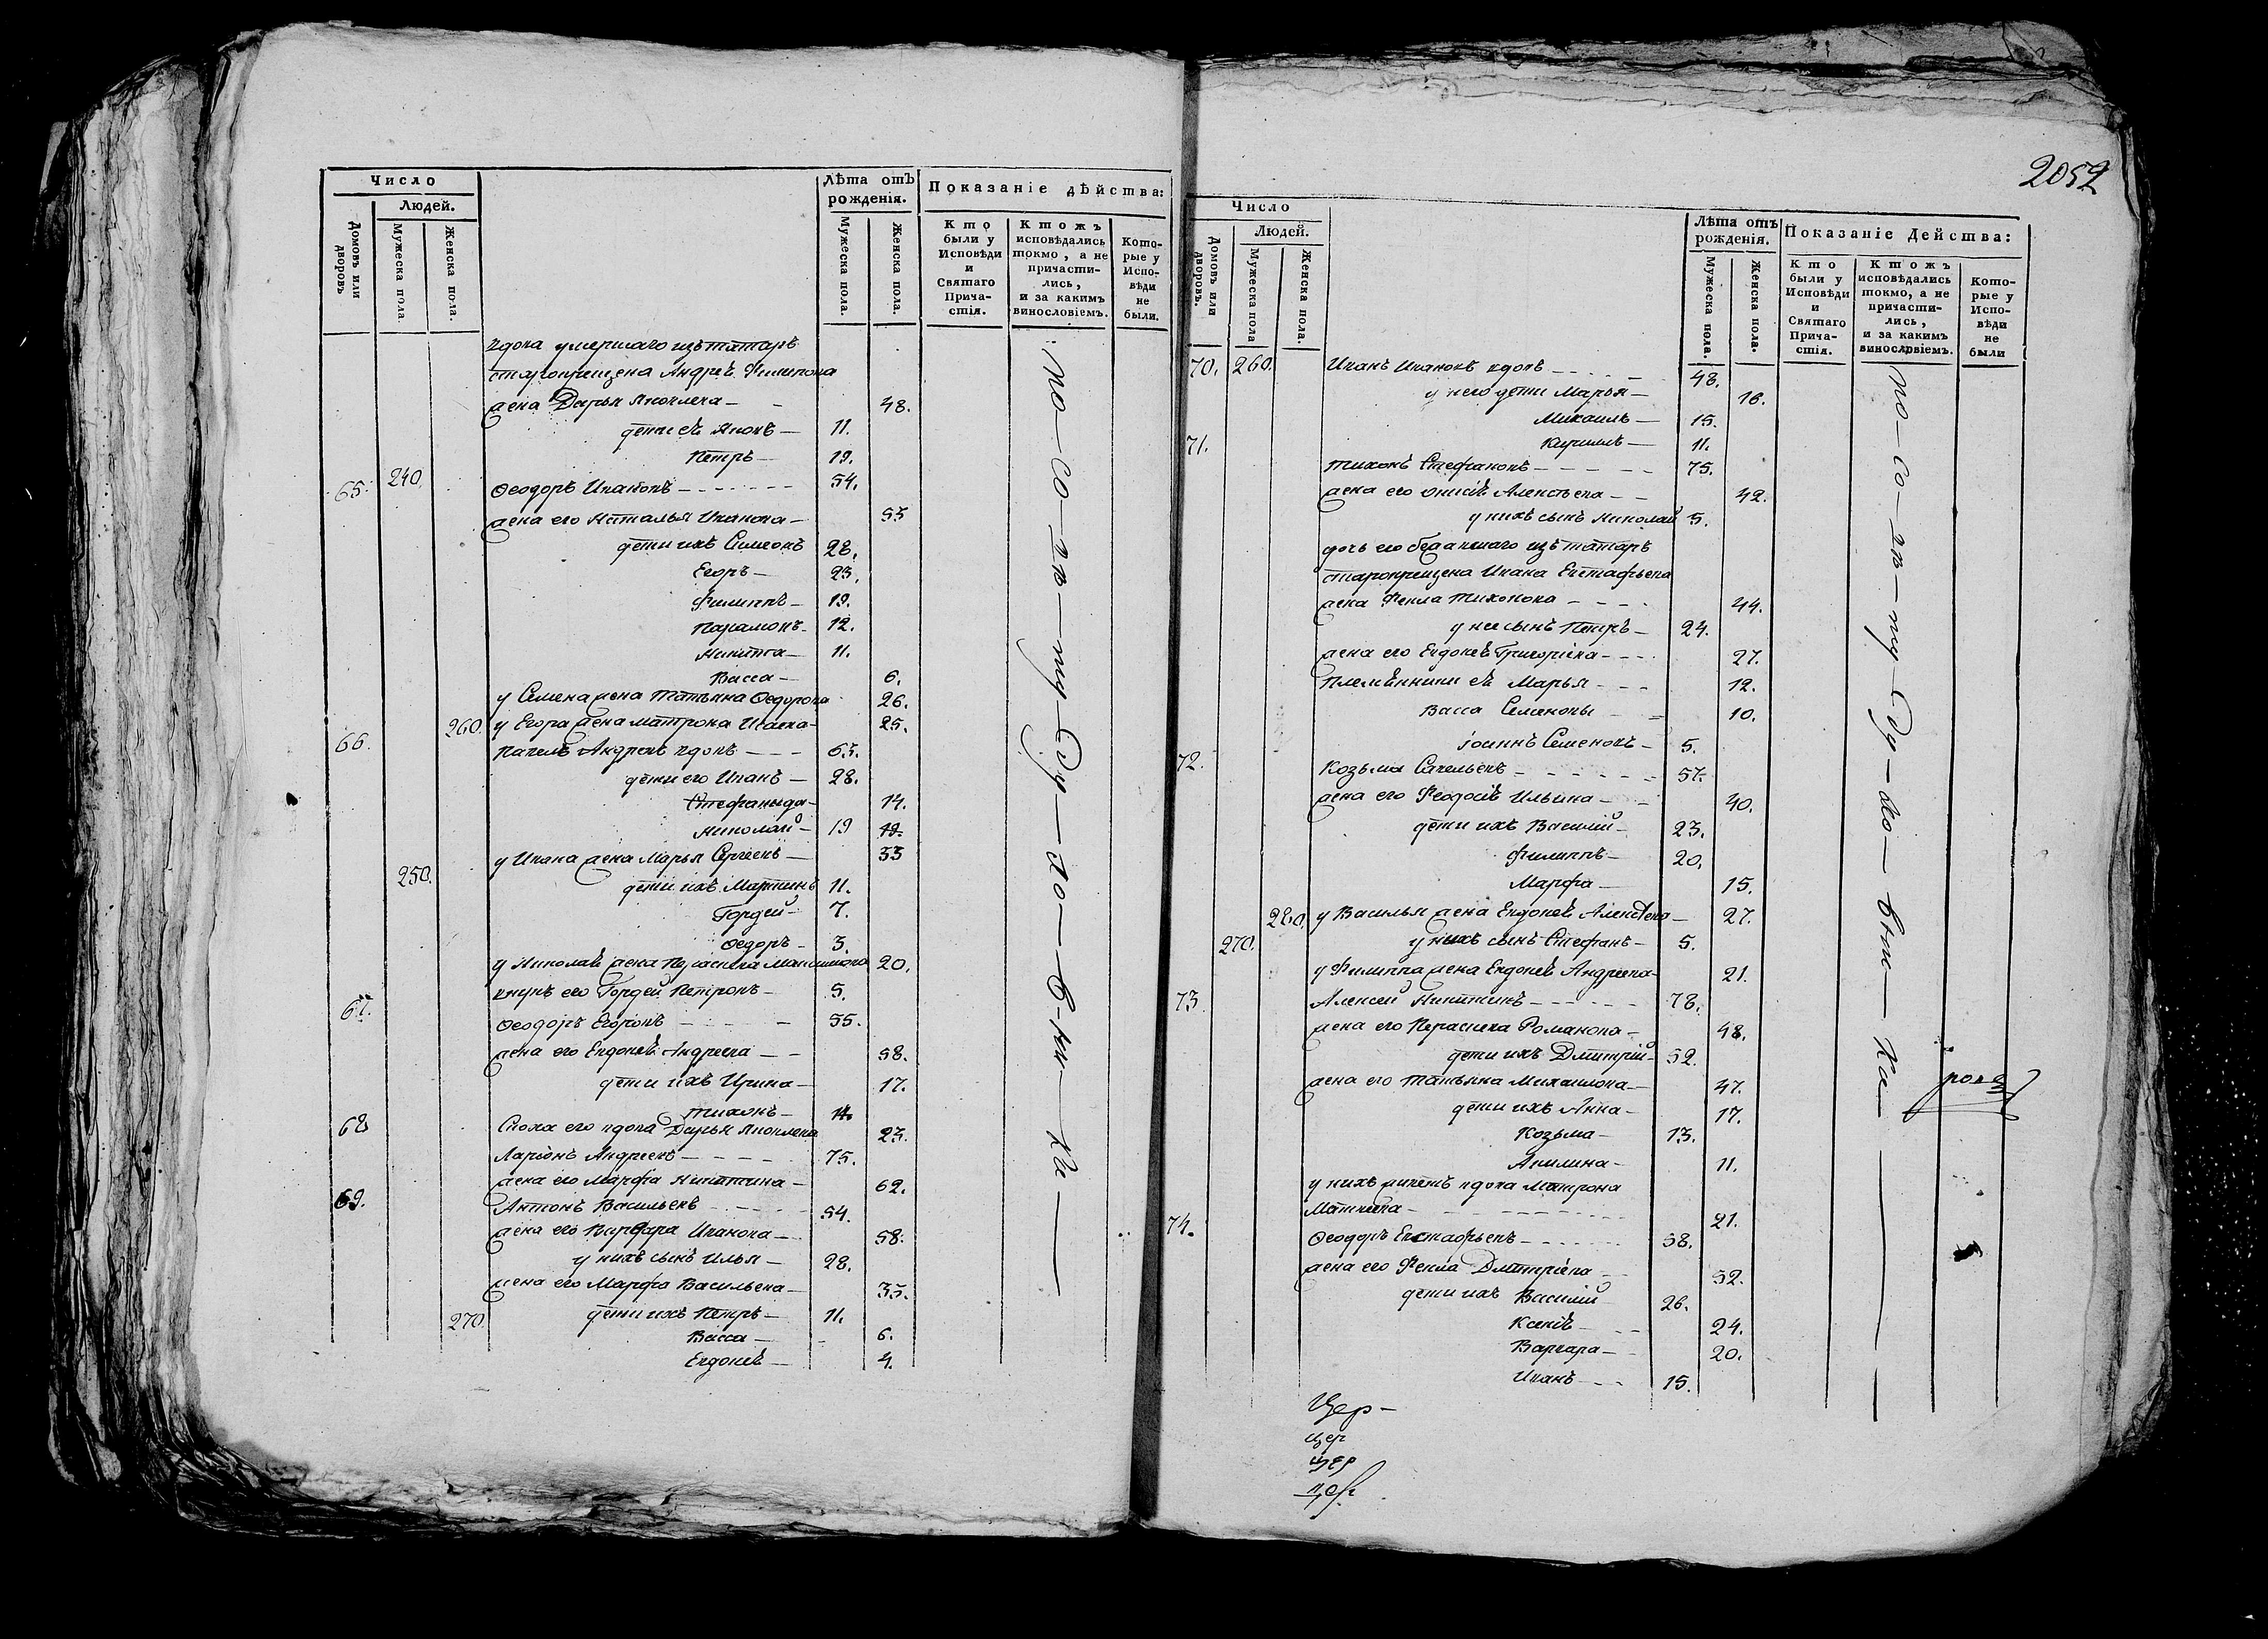 2052
Число
Людей.
Домовъ или дворовъ
Мужеска пола.
Женска пола.
Лѣта отъ рожденія.
Мужеска пола.
Женска пола.
Показаніе дѣйства:
Кто были у Исповѣди и Святаго Прича-стія.
Ктожъ исповѣдались токмо, а не причасти-лись, и за какимъ винословіемъ.
Кото-рые у Испо-вѣди не были.
вдова умершаго изъ татаръ
старокрещена Андрея Филипова
жена Дарья Яковлева — 48.
дети ея Яковъ — 11.
Петръ — 19.
65. 240. Ѳеодоръ Ивановъ — 54.
жена его Наталья Иванова — 53
дети ихъ Симеонъ 28.
Егоръ — 23.
Филиппъ — 19.
Парамонъ — 12.
Никита — 11.
Васса — 6.
у Семена жена Татьяна Ѳедорова 26.
260. у Егора жена Матрона Исаева 25.
66. Павелъ Андреевъ вдовъ — 63.
дети его Иванъ — 28.
Стефанида — 14.
Николай — 19 19.
у Ивана жена Марья Сергеевъ — 33
250. дети ихъ Мартинъ 11.
Гордей — 7.
Ѳедоръ — 3.
у Николая жена Параскева Максимова 20.
внукъ его Гордей Петровъ — 5.
67. Ѳеодоръ Егоровъ — 55.
жена его Евдокея Андреева — 58.
дети ихъ Ирина — 17.
Тихонъ — 14.
Сноха его вдова Дарья Яковлева 23.
68 Ларіонъ Андреевъ — 75.
жена его Марфа Никитина — 62.
69. Антонъ Васильевъ — 54.
жена его Варвара Иванова — 58.
у нихъ сынъ Илья — 28.
жена его Марфа Васильева — 35.
270. дети ихъ Петръ — 11.
Васса — 6.
Евдокея — 4.
Число
Людей.
Домовъ или дворовъ.
Мужеска пола
Женска пола.
Лѣта отъ рожденія.
Мужеска пола.
Женска пола.
Показаніе Действа:
Кто были у Исповѣди и Святаго Прича-стія.
Ктожъ исповѣдались токмо, а не причасти-лись, и за какимъ винословіемъ.
Кото-рые у Испо-вѣди не были
70. 260. Иванъ Ивановъ вдовъ — 48.
у него дети Марья — 16.
Михаилъ — 15.
71. Кирилъ — 11.
Тихонъ Стефановъ — 75.
жена его Алексѣева — 42.
у нихъ сынъ Николай 5.
дочь его изъ татаръ
старокрещена Ивана Евстафьева
жена Фекла Тихонова — 44.
у нее сынъ Петръ — 24.
жена его Евдокея Григорьева — 27.
племянники ея Марья — 12.
Васса Семеновы — 10.
Іоаннъ Семеновъ — 5.
72. Козьма Савельевъ — 57.
жена его Феодосія Ильина — 40.
дети ихъ Василій — 23.
Филиппъ — 20.
Марфа — 15.
280. у Василья жена Евдокея Алексѣева — 27.
270. у нихъ сынъ Стефанъ — 5.
у Филиппа жена Евдокея Андреева — 21.
73. Алексей Никитинъ — 78.
жена его Параскева Романова — 48.
дети ихъ Дмитрій — 52.
жена его Татьяна Михаилова — 47.
дети ихъ Анна — 17.
Козьма — 13.
Акилина — 11.
у нихъ живетъ вдова Матрона
Матвеева — 21.
74. Ѳеодоръ Евстафьевъ — 58.
жена его Фекла Дмитріева — 52.
дети ихъ Василій — 26.
Ксенія — 24.
Варвара — 20.
Иванъ — 15.
Цер —
цер
цер
цер